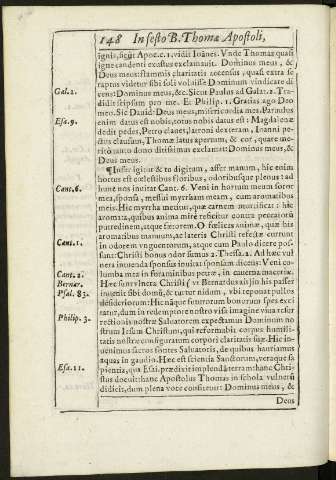 148 In festo B. Thomæ Apostoli,
ignis, sicut Apoc. c. 1. vidit Ioánes. Vnde Thomas quasi
igne candenti exustus exclamauit. Dominus meus, &
Deus meus: flammis charitatis accensus, quasi extra se
raptus videtur sibi soli voluisse Dominum vindicare di-
cens: Dominus meus, &c. Sicut Paulus ad Galat. 2. Tra-
Gal. 2.
didit seipsum pro me. Et Philip. 1. Gratias ago Deo
meo. Sic Dauid: Deus meus, misericordia mea. Paruulus
Esa. 9.
enim datus est nobis, totus nobis datus est: Magdalenæ
dedit pedes, Petro claues, latroni dexteram, Ioanni pe-
ctus clausum, Thomæ latus apertum, & cor, quare me-
rito tanto dono ditissimus exclamat: Dominus meus, &
Deus meus.
¶ Infer igitur & tu digitum, affer manum, hic enim
hortus est cœlestibus floribus, odoribusque plenus: ad
Cant. 6.
hunc nos inuitat Cant. 6. Veni in hortum meum soror
mea, sponsa, messui myrrham meam, cum aromatibus
meis. Hic myrrha metitur, quæ carnem mortificat: hic
aromata, quibus anima mirè reficitur contra peccatorū
putredinem, atque fœtorem. O fœlices animæ, quæ his
aromatibus manuum, ac lateris Christi refectæ currunt
Cant. 1.
in odorem vnguentorum, atque cum Paulo dicere pos-
sunt: Christi bonus odor sumus 2. Thessa. 2. Ad hæc vul-
nera inuenda sponsus inuitat sponsam dicens: Veni co-
Cant. 2.
lumba mea in foraminibus petræ, in cauerna maceriæ.
Bernar.
Hæc sunt vlnera Christi (vt Bernardus ait) in his passer
Psal. 83.
inuenit sibi domū, & turtur nidum, vbi reponat pullos
desideriorum: Hic náque sunt eorum bonorum spes exci
tatur, dum in redemptore nostro visa imagine viua resur
Philip. 3.
rectionis nostræ Saluatorem expectamus Dominum no
strum Iesum Christum, qui reformabit corpus humili-
tatis nostræ configuratum corpori claritatis suæ. Hic in-
uenimus sacros fontes Saluatoris, de quibus hauriamus
aquas in gaudio. Hæc est scientia Sanctorum, veraque sa
Esa. 11.
pientia, qua Esai. prædixit implendā terrā mihāc Chri-
stus docuit: hanc Apostolus Thomas in schola vulnerū
didicit, dum plena voce constetur: Dominus meus, &
Deus